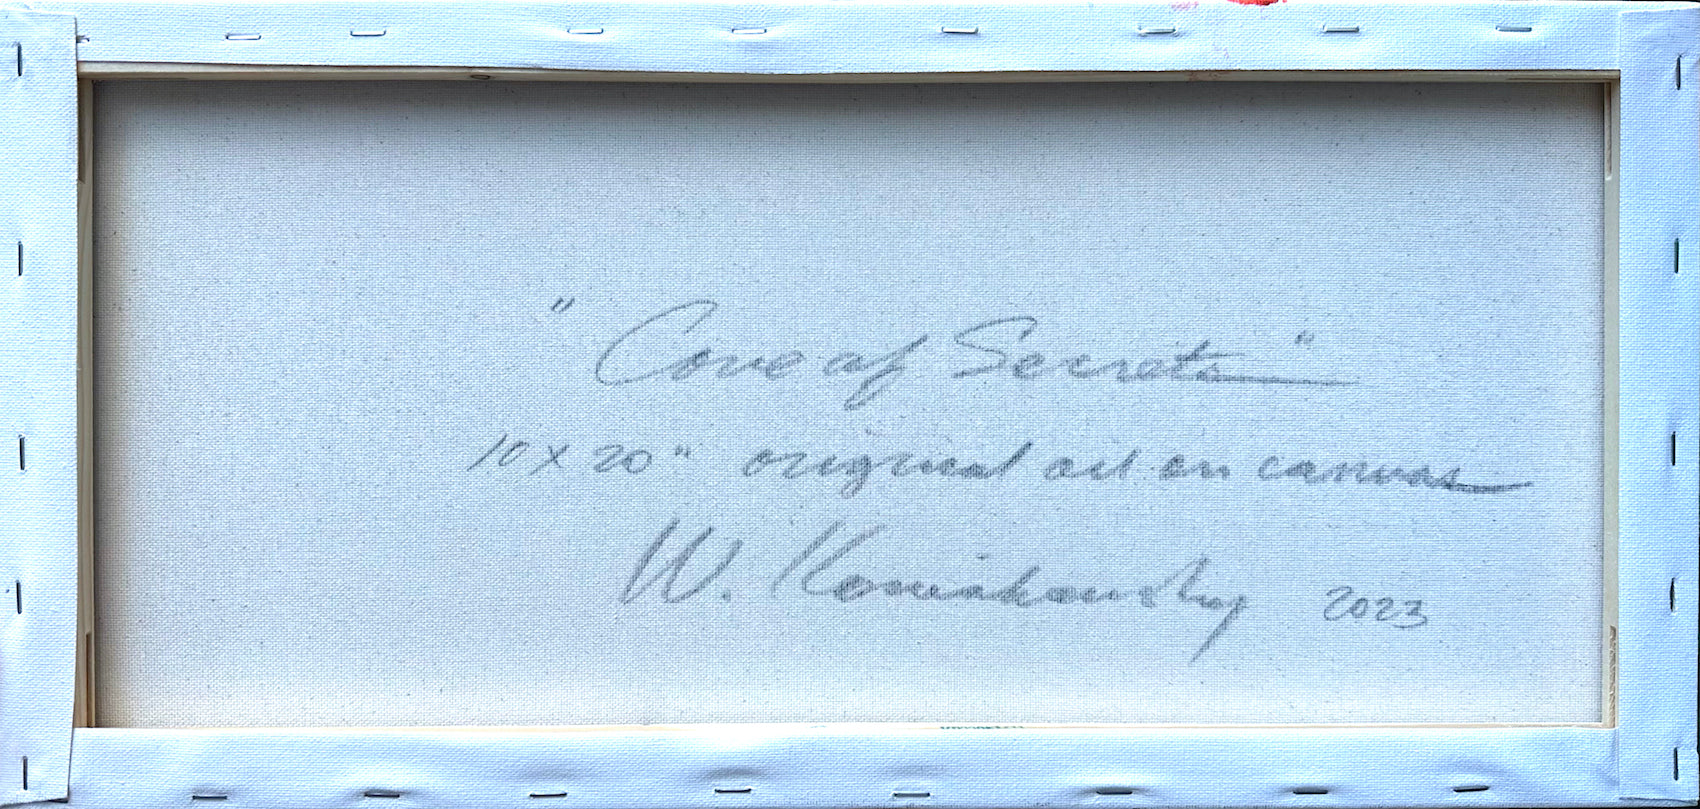 "Cove of Secrets"
10 x 20" original oil on canvas
W. 2023